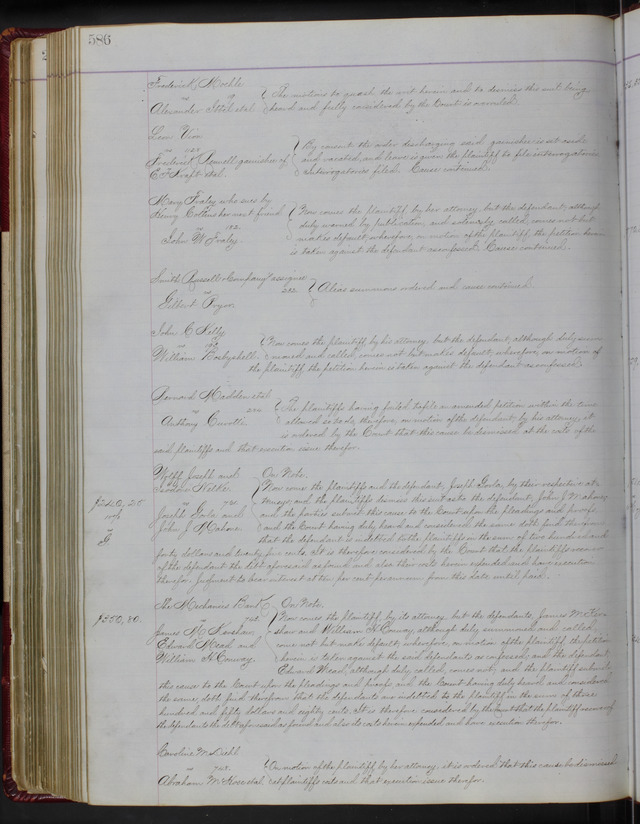 586
Frederick
vs
Alexander et al
The motions to quash the writ herein and to dismiss this suit being
heard and fully considered by the Court is overruled.
Levi
vs
Frederick garnishee of
C F Kraft et al.
By consent the order discharging said garnishee is set aside
and vacated, and leave is given the plaintiff to file interrogatories.
Interrogatories filed. Cause continued.
Mary Fraley who sues by
Henry her next friend
vs
John W Fraley
Now comes the plaintiff, by her attorney, but the defendant, although
duly warned by publication, and solemnly called, comes not but
makes default; wherefore, on motion of the plaintiff, the petition herein
is taken against the defendant as confessed. Cause continued.
Smith Russell & Company assignee
vs
Gilbert Pryor
Alias summons ordered and cause continued.
John C Kelly
vs
William
Now comes the plaintiff by his attorney, but the defendant, although duly summ-
oned and called, comes not but makes default; wherefore, on motion of
the plaintiff, the petition herein is taken against the defendant as confessed.
Bernard Madden et al
vs
Anthony
The plaintiffs having failed to file an amended petition within the time
allowed so to do, therefore, on motion of the defendant, by his attorney, it
is ordered by the Court that this cause be dismissed at the costs of the
said plaintiffs and that execution issue therefor.
$240.25
Joseph and
vs
Joseph and
John J Mahoney
On Note.
Now come the plaintiffs and the defendant, Joseph by their respective at-
torneys, and the plaintiffs dismiss this suit as to the defendant, John J Mahoney
and the parties submit this cause to the Court upon the pleadings and proofs
and the Court having duly heard and considered the same doth find therefrom
that the defendant is indebted to the plaintiffs in the sum of two hundred and
forty dollars and twenty five cents. It is therefore considered by the Court that the plaintiffs recover
of the defendant the debt aforesaid as found and also their costs herein expended and have execution
therefor. Judgment to bear interest at ten per cent per annum from this date until paid.
$350.80.
The Mechanics Bank
vs
James M Kershaw
Edward Mead and
William H Conway
On Note
Now comes the plaintiff, by its attorney, but the defendants, James M Ker-
shaw and William H Conway, although duly summoned and called,
come not but make default; wherefore, on motion of the plaintiff, the petition
herein is taken against the said defendants as confessed, and the defendant
Edward Mead, although duly called, comes not; and the plaintiff submits
this cause to the Court upon the pleadings and proofs and the Court having duly heard and considered
the same, doth find therefrom that the defendants are indebted to the plaintiff in the sum of three
hundred and fifty dollars and eighty cents. It is therefore considered by the Court that the plaintiff recover of
the defendants the debt aforesaid as found and also its costs herein expended, and have execution therefor.
Caroline M Diehl
vs
Abraham M et al.
On motion of the plaintiff, by her attorney, it is ordered that this cause be dismissed
at plaintiff's costs and that execution issue therefor.